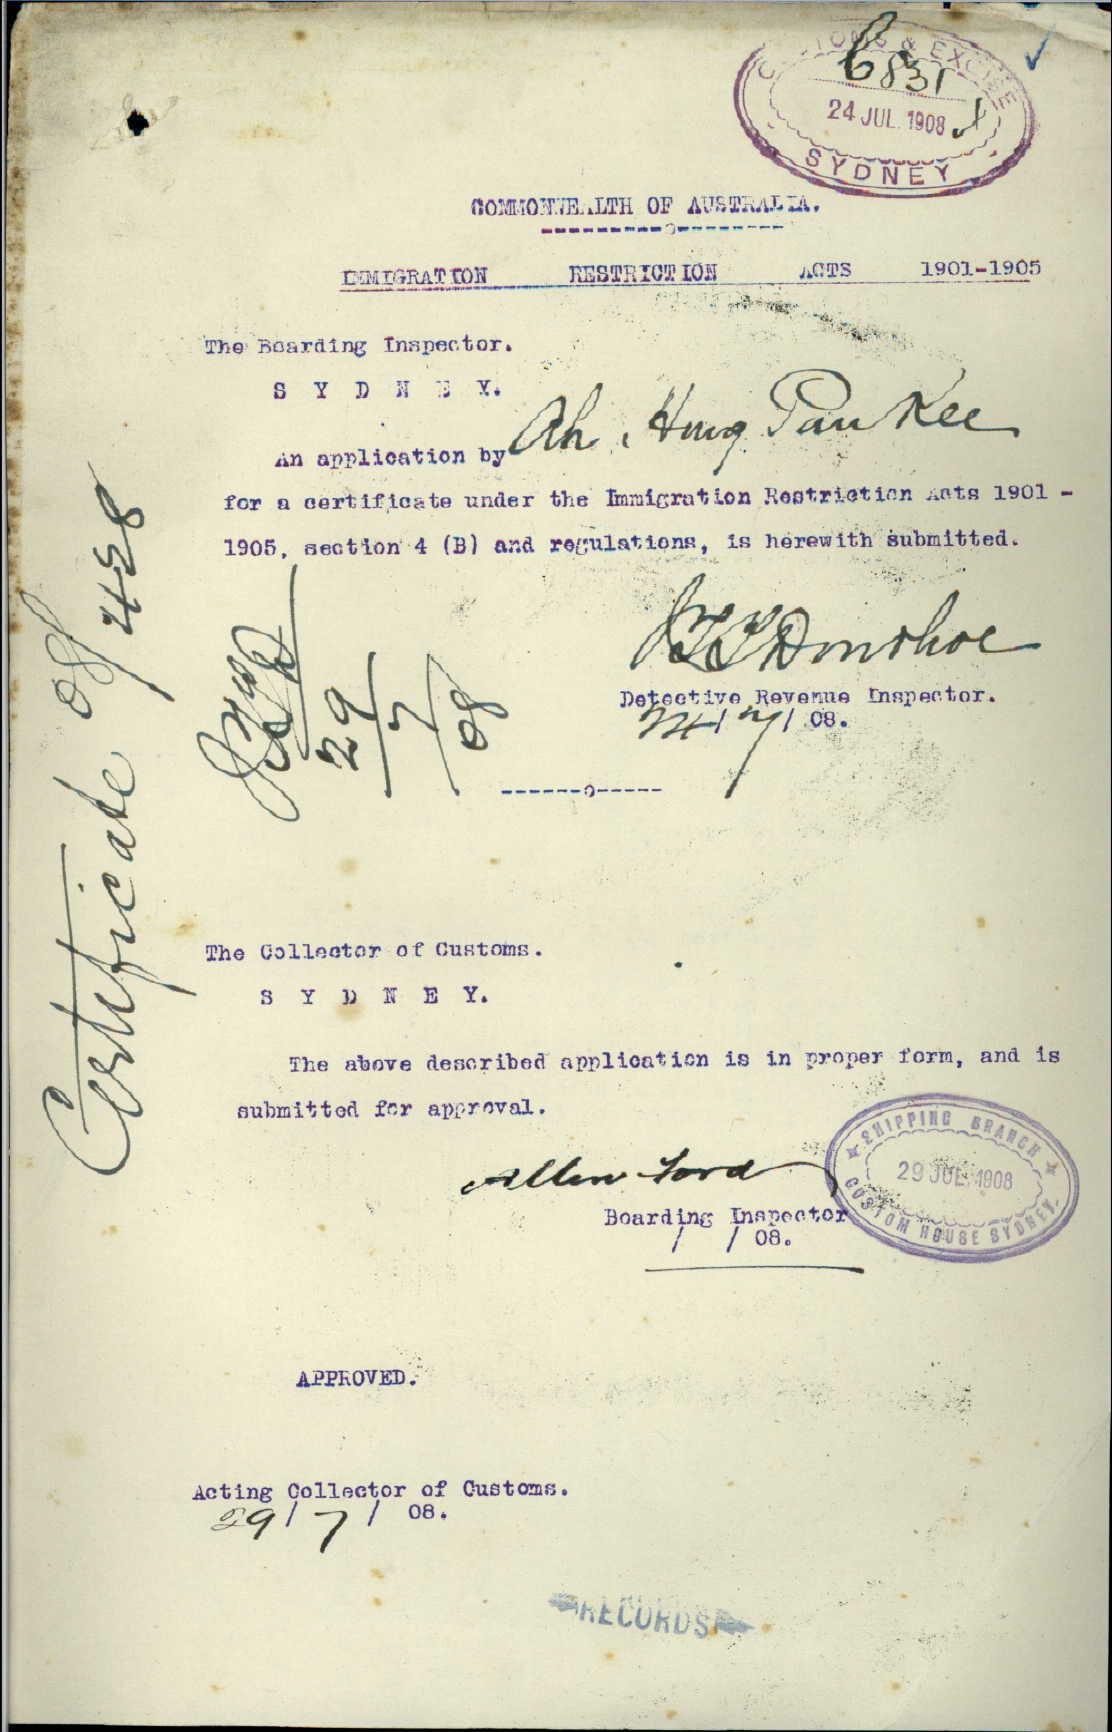 CUSTOMS & EXCISE
C8831
24 JUL. 1908
SYDNEY
COMMONWEALTH OF AUSTRALIA.
----------o---------
IMMIGRATION RESTRICTION ACTS 1901-1905
The Boarding Inspector.
S Y D N E Y.
An application by Ah Hung Pan Kee
for a certificate under the Immigration Restriction Acts 1901 -
1905, section 4 (B) and regulations, is herewith submitted.
Donohoe
Detective Revenue Inspector.
24/7/08.
29/7/08
------o-----
Certificate 08/458
The Collector of Customs.
S Y D N E Y.
The above described application is in proper form, and is
submitted for approval.
Allen Ford
Boarding Inspector
/ / 08.
SHIPPING BRANCH
29 JUL. 1908
CUSTOM HOUSE SYDNEY.
APPROVED.
Acting Collector of Customs.
29/7/ 08.
RECORDS